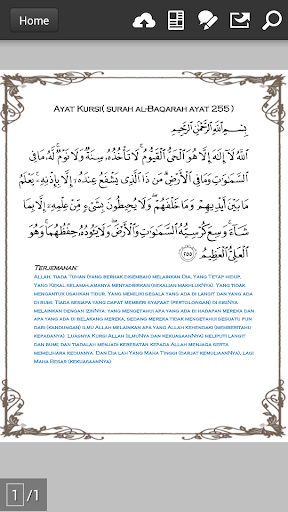 Home
Ayat Kursi( surah al-Baqarah ayat 255 )
بِسْمِ اللَّهِ الرَّحْمَٰنِ الرَّحِيمِ
اللَّهُ لَا إِلَٰهَ إِلَّا هُوَ الْحَيُّ الْقَيُّومُ ۚ لَا تَأْخُذُهُ سِنَةٌ وَلَا نَوْمٌ ۚ لَّهُ مَا فِي
السَّمَاوَاتِ وَمَا فِي الْأَرْضِ ۗ مَن ذَا الَّذِي يَشْفَعُ عِندَهُ إِلَّا بِإِذْنِهِ ۚ يَعْلَمُ
مَا بَيْنَ أَيْدِيهِمْ وَمَا خَلْفَهُمْ ۖ وَلَا يُحِيطُونَ بِشَيْءٍ مِّنْ عِلْمِهِ إِلَّا بِمَا
شَاءَ ۚ وَسِعَ كُرْسِيُّهُ السَّمَاوَاتِ وَالْأَرْضَ ۖ وَلَا يَئُودُهُ حِفْظُهُمَا ۚ وَهُوَ
الْعَلِيُّ الْعَظِيمُ ٢٥٥
Terjemahan:
Allah, tiada Tuhan (yang berhak disembah) melainkan Dia, Yang Tetap hidup,
Yang Kekal selama-lamanya mentadbirkan (sekalian makhlukNya). Yang tidak
mengantuk usahkan tidur. Yang memiliki segala yang ada di langit dan yang ada
di bumi. Tiada sesiapa yang dapat memberi syafaat (pertolongan) di sisiNya
melainkan dengan izinNya. yang mengetahui apa yang ada di hadapan mereka dan
apa yang ada di belakang mereka, sedang mereka tidak mengetahui sesuatu pun
dari (kandungan) ilmu Allah melainkan apa yang Allah kehendaki (memberitahu
kepadanya). Luasnya Kursi Allah (ilmuNya dan kekuasaanNya) meliputi langit
dan bumi; dan tiadalah menjadi keberatan kepada Allah menjaga serta
memelihara keduanya. Dan Dia lah Yang Maha Tinggi (darjat kemuliaanNya), lagi
Maha Besar (kekuasaanNya)
1 /1